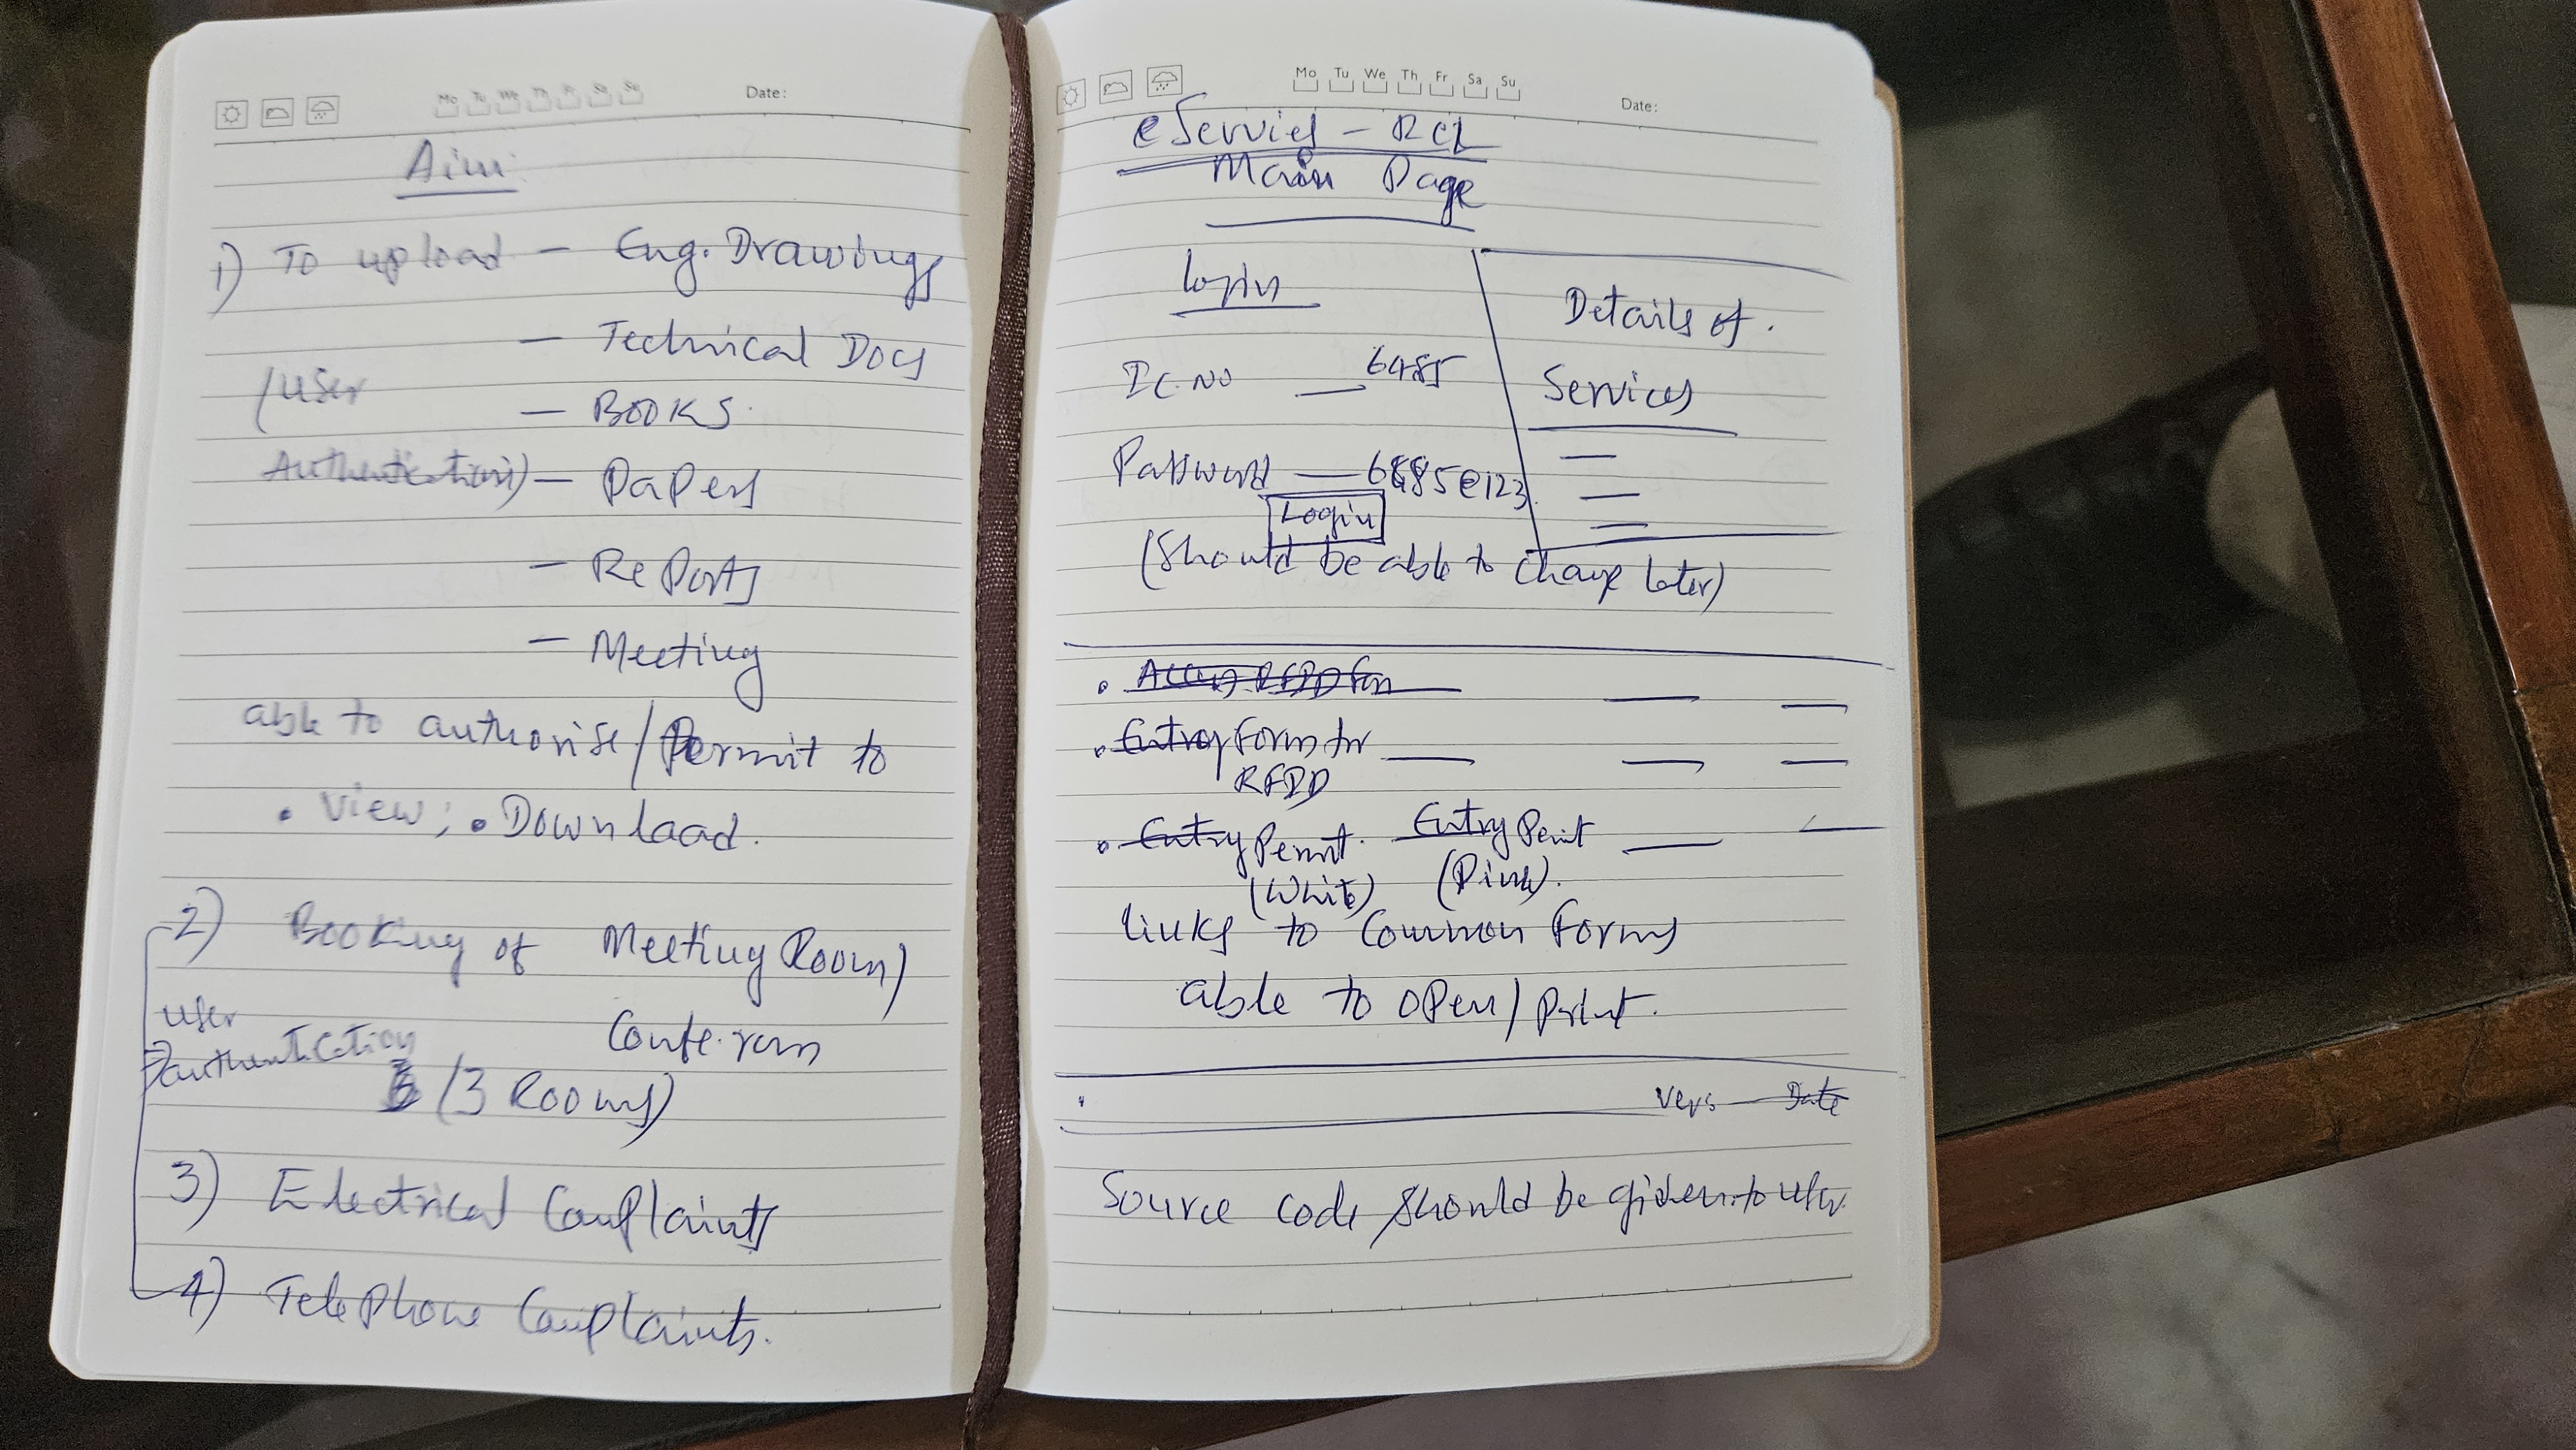 Mo Tu We Th Fr Sa Su
Date:
Aim:
1) To upload — Eng. Drawings
— Technical Docs
(User
— Books.
Authentication) — Papers
— Reports
— Meeting
able to authorise / Permit to
• View; • Download.
2) Booking of Meeting Room)
User
Conf. room
authentication
(3 Rooms)
3) Electrical Complaints
4) Telephone Complaints.
Mo Tu We Th Fr Sa Su
Date:
eServices – RCI
Main Page
Login
Details of.
Services
IC. No — 6485
Password — 6485@123.
Login
(Should be able to change later)
• Entry Form for
RFDD
• Entry Permit. Entry Permit
(White) (Pink).
links to Common Forms
able to open / Print.
Vers — Date
Source code should be given to user.